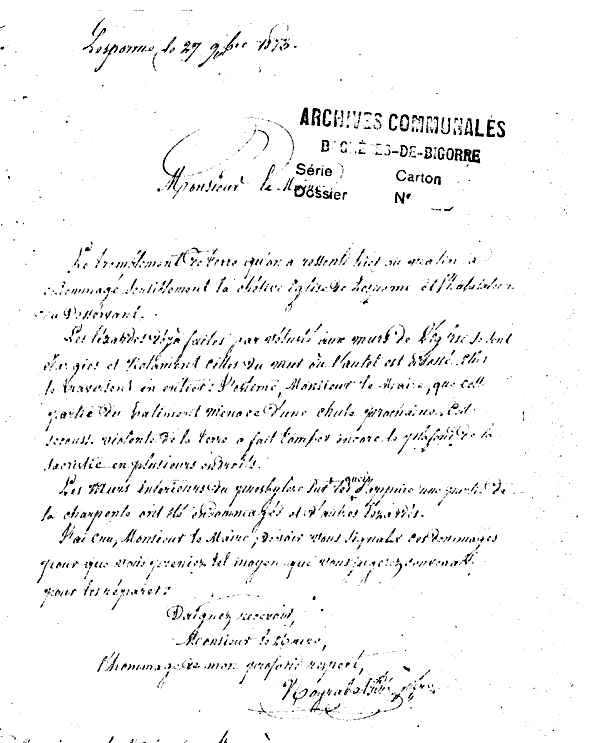 Lesponne, le 27 9bre 1873.
ARCHIVES COMMUNALES
BAGNÈRES-DE-BIGORRE
Série Carton
Dossier N°
Monsieur le Maire
Le tremblement de terre qu'on a ressenti hier au matin a
endommagé sensiblement la chétive église de Lesponne et l'habitation
du Desservant.
Les lézardes déjà faites par vétusté aux murs de l'église se sont
élargies et notamment celles du mur où l'autel est adossé. Elles
le traversent en entier. J'estime, Monsieur le Maire, que cette
partie du bâtiment menace d'une chute prochaine. Cette
secousse violente de la terre a fait tomber encore le plafond de la
sacristie en plusieurs endroits.
Les murs intérieurs du presbytère sur lesquels s'appuie une partie de
la charpente ont été endommagés et d'autres lézardés.
J'ai cru, Monsieur le Maire, devoir vous signaler ces dommages
pour que vous preniez tel moyen que vous jugerez convenable
pour les réparer.
Daignez recevoir,
Monsieur le Maire,
l'hommage de mon profond respect,